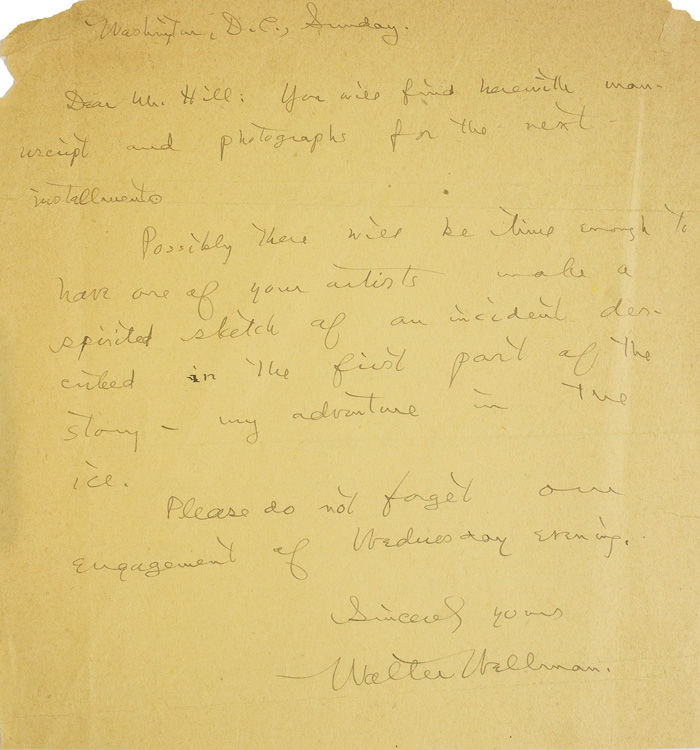 Washington, D.C., Sunday.
Dear Mr. Hill: You will find herewith man-
uscript and photographs for the next
installments
Possibly there will be time enough to
have one of your artists make a
spirited sketch of an incident des-
cribed in the first part of the
story - my adventure in the
ice.
Please do not forget our
engagement of Wednesday evening.
Sincerely yours
Walter Wellman.